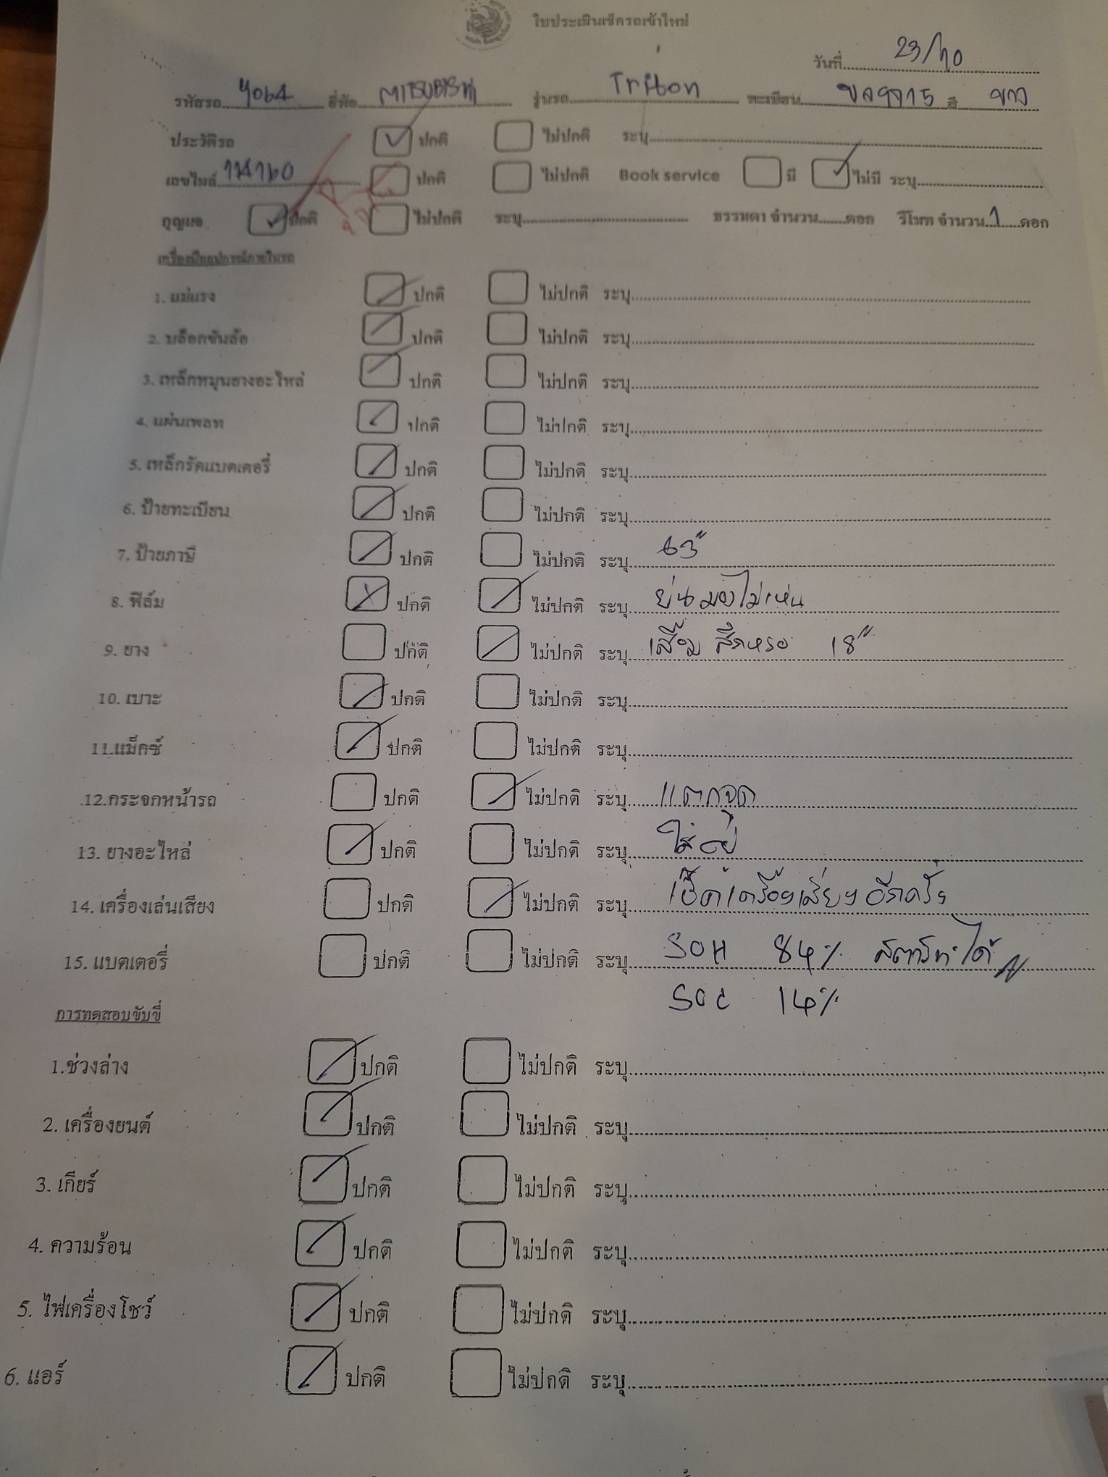 ใบประเมินเช็ครถเข้าใหม่
วันที่ 23/10
รหัสรถ 4064 ยี่ห้อ MITSUBISHI รุ่นรถ Triton ทะเบียน สี ขาว
ประวัติรถ ปกติ ไม่ปกติ ระบุ
เลขไมล์ ปกติ ไม่ปกติ Book service มี ไม่มี ระบุ
กุญแจ ปกติ ไม่ปกติ ระบุ ธรรมดา จำนวน ดอก รีโมท จำนวน 1 ดอก
เครื่องมืออุปกรณ์ภายในรถ
1. แม่แรง ปกติ ไม่ปกติ ระบุ
2. บล็อกขันล้อ ปกติ ไม่ปกติ ระบุ
3. เหล็กหมุนยางอะไหล่ ปกติ ไม่ปกติ ระบุ
4. แผ่นเพลท ปกติ ไม่ปกติ ระบุ
5. เหล็กรัดแบตเตอรี่ ปกติ ไม่ปกติ ระบุ
6. ป้ายทะเบียน ปกติ ไม่ปกติ ระบุ
7. ป้ายภาษี ปกติ ไม่ปกติ ระบุ 63"
8. ฟิล์ม ปกติ ไม่ปกติ ระบุ ย่น มองไม่เห็น
9. ยาง ปกติ ไม่ปกติ ระบุ เสื่อม สึกหรอ 18"
10. เบาะ ปกติ ไม่ปกติ ระบุ
11.แม็กซ์ ปกติ ไม่ปกติ ระบุ
12.กระจกหน้ารถ ปกติ ไม่ปกติ ระบุ แตกจุด
13. ยางอะไหล่ ปกติ ไม่ปกติ ระบุ ใส่อยู่
14. เครื่องเล่นเสียง ปกติ ไม่ปกติ ระบุ เช็คเครื่องเสียงอีกครั้ง
15. แบตเตอรี่ ปกติ ไม่ปกติ ระบุ SOH 84% สตาร์ทได้
SOC 14%
การทดสอบขับขี่
1.ช่วงล่าง ปกติ ไม่ปกติ ระบุ
2. เครื่องยนต์ ปกติ ไม่ปกติ ระบุ
3. เกียร์ ปกติ ไม่ปกติ ระบุ
4. ความร้อน ปกติ ไม่ปกติ ระบุ
5. ไฟเครื่องโชว์ ปกติ ไม่ปกติ ระบุ
6. แอร์ ปกติ ไม่ปกติ ระบุ